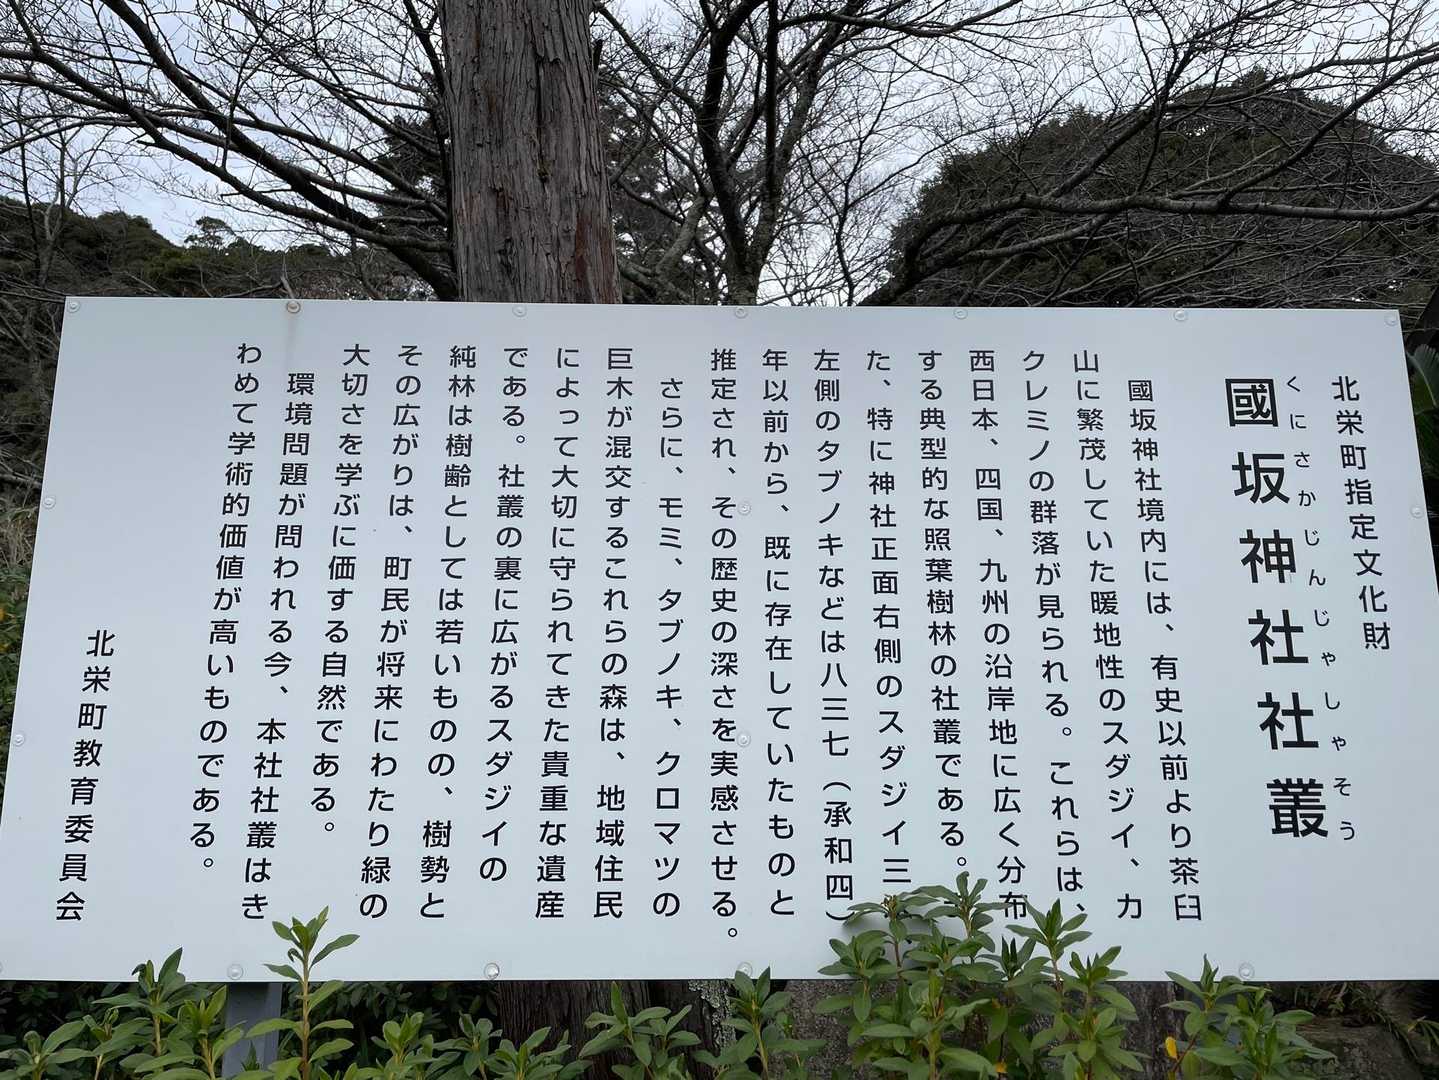 北栄町指定文化財
くにさかじんじゃしゃそう
國坂神社社叢
國坂神社境内には、有史以前より茶臼
山に繁茂していた暖地性のスダジイ、カ
クレミノの群落が見られる。これらは、
西日本、四国、九州の沿岸地に広く分布
する典型的な照葉樹林の社叢である。
た、特に神社正面右側のスダジイ三
左側のタブノキなどは八三七（承和四）
年以前から、既に存在していたものと
推定され、その歴史の深さを実感させる。
さらに、モミ、タブノキ、クロマツの
巨木が混交するこれらの森は、地域住民
によって大切に守られてきた貴重な遺産
である。社叢の裏に広がるスダジイの
純林は樹齢としては若いものの、樹勢と
その広がりは、町民が将来にわたり緑の
大切さを学ぶに価する自然である。
環境問題が問われる今、本社社叢はき
わめて学術的価値が高いものである。
北栄町教育委員会